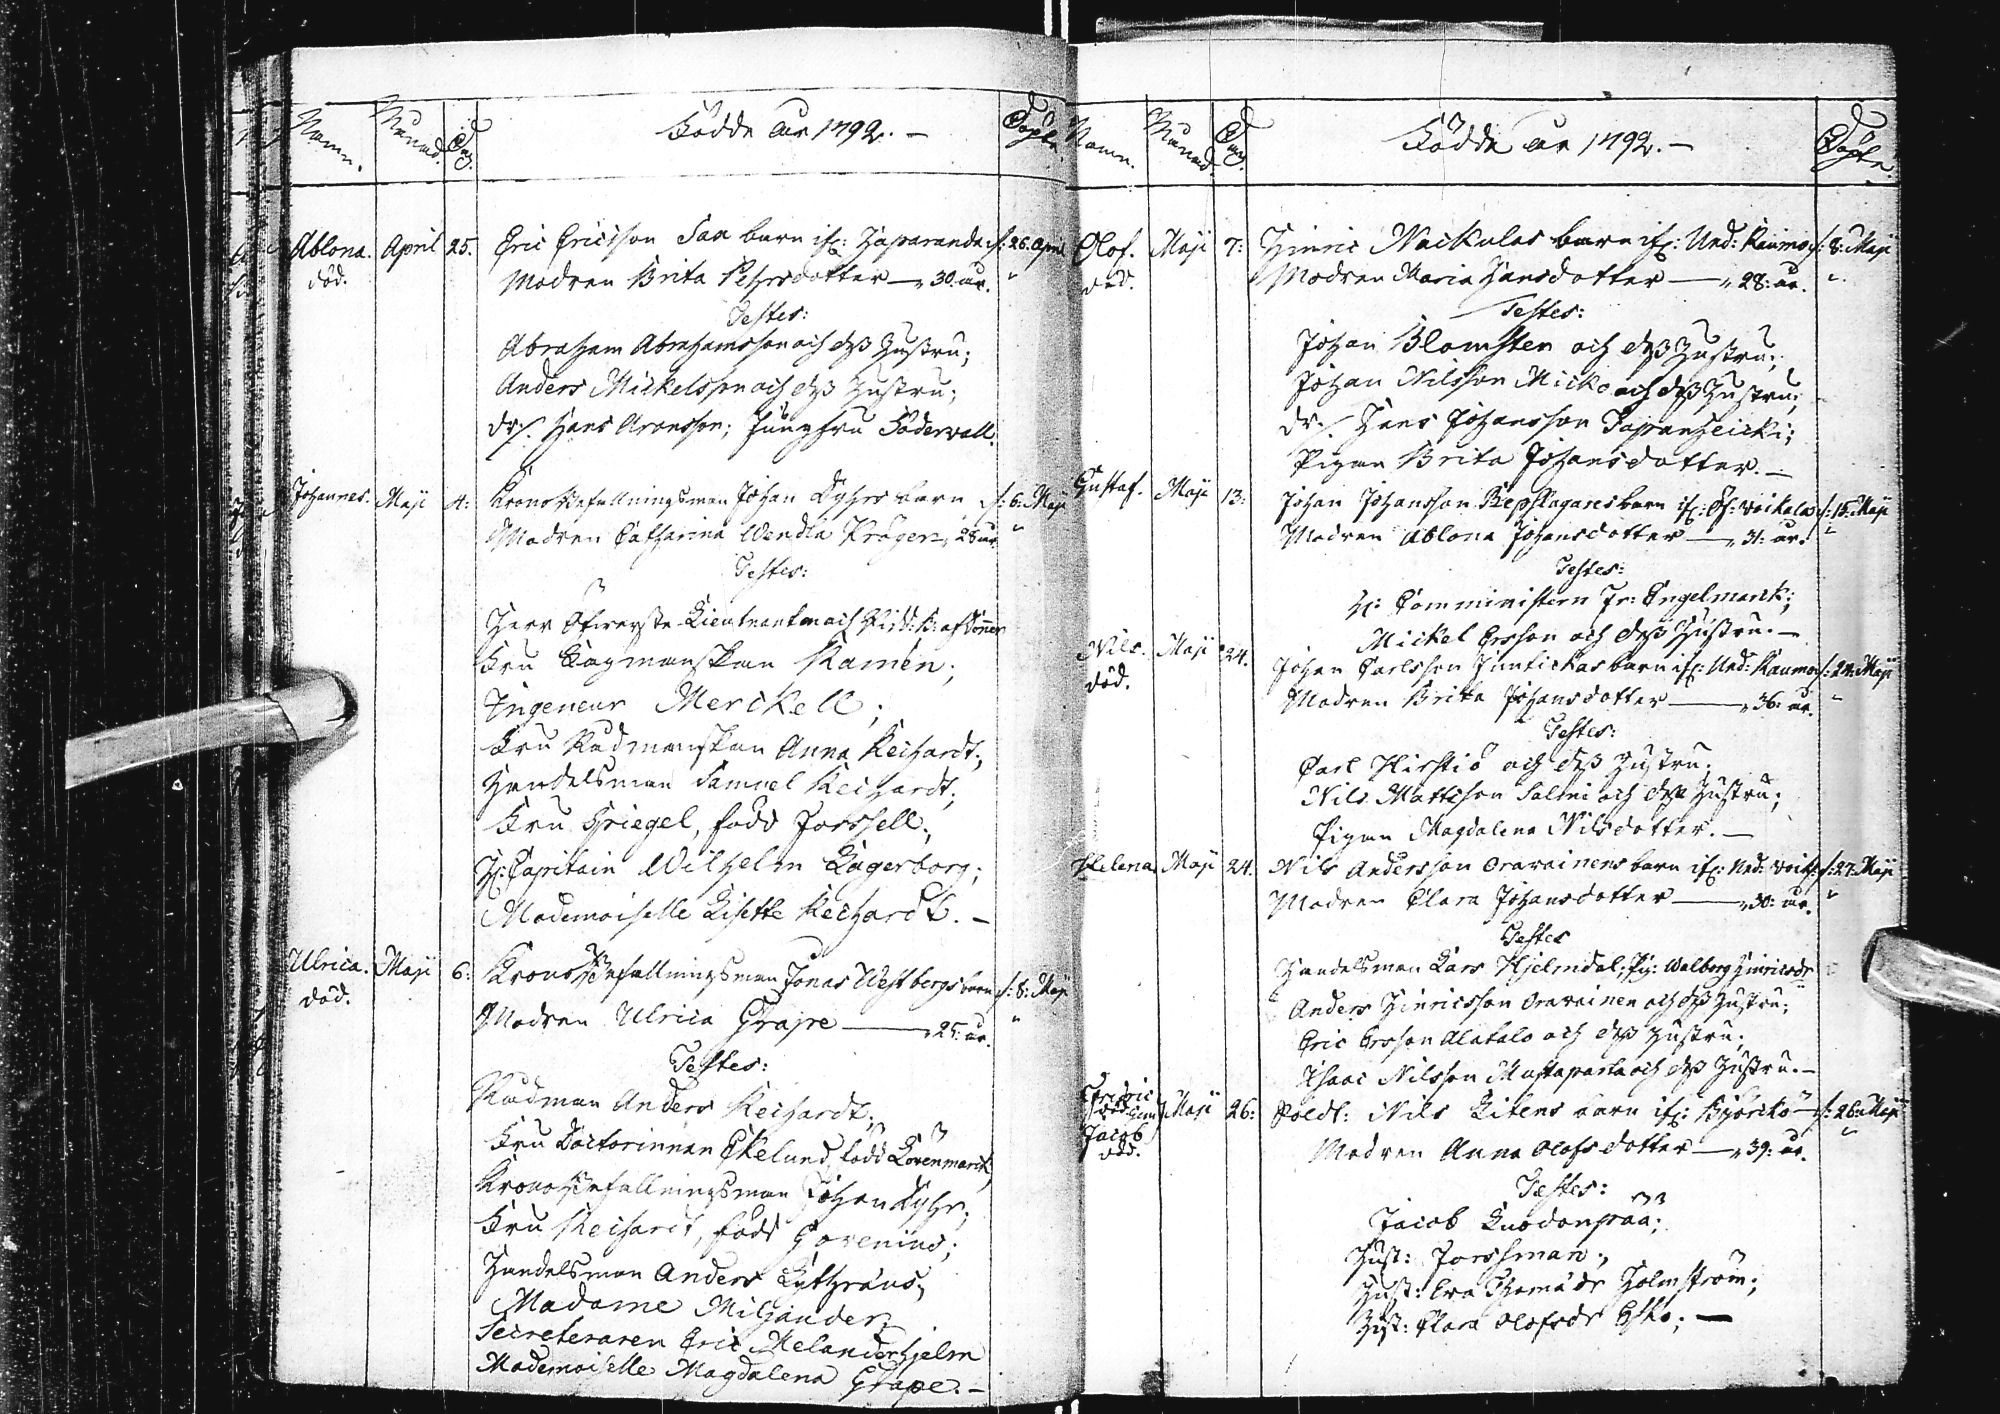 Namn. Månad. Dag. Födde åhr 1792. – Döpte.
Ablona. April 25. Eric Ericsson Saa barn ifr: Haparanda d: 26. April
död. Modren Brita Pehrsdotter — 30. år. "
Testes:
Abraham Abrahamsson och dess Hustru;
Anders Mickelsson och dess Hustru;
dr: Hans Aronsson; Jungfru Södervall.
Johannes. Maji 4: Krono Befallningsman Johan Dyhrs barn d: 6: Maji
Modren Catharina Wendla Krüger, 28 år "
Testes:
Herr Öfwerste Lieutnanten och Ridd:
Fru Lagmanskan Ramén;
Ingeneur Merckell;
Fru Rådmanskan Anna Reichardt;
Handelsman Samuel Reichardt;
Fru Spiegel, född Forssell;
H: Capitain Wilhelm Lagerborg;
Mademoiselle Lisette Reichardt. –
Ulrica. Maji 6: Krono Befallningsman Jonas Westbergs barn d: 8: Maji
död. Modren Ulrica Grape — 25: år. "
Testes:
Rådman Anders Reichardt;
Fru Doctorinnan Ekelund, född Lövenmarck;
Krono Befallningsman Johan Dyhr;
Fru Reichardt, född Govenius;
Handelsman Anders Lythræus;
Madame Milhander
Secreteraren Eric Melanderhjelm
Mademoiselle Magdalena Grape. –
Namn. Månad. Dag. Födde åhr 1792. – Döpte.
Olof. Maji 7: Hinric Naikulas barn ifr: Ned: Raumo d: 8: Maji
död. Modren Maria Hansdotter — 28: år. "
Testes:
Johan Blomsten och dess Hustru;
Johan Nilsson Micko och dess Hustru;
dr: Hans Johansson Tapanheicki;
Pigan Brita Johansdotter. –
Gustaf. Maji 13: Johan Johansson Repslagares barn ifr: Öf: Woikala d: 15: Maji
Modren Ablona Johansdotter — 31: år. "
Testes:
H: Comministern Engelmarck;
Mickel Ersson och dess Hustru. –
Nils. Maji 24. Johan Carlsson Juntickas barn ifr: Ned: Raumo d: 24: Maji
död. Modren Brita Johansdotter — 36: år. "
Testes:
Carl Hirstiö och dess Hustru.
Nils Mattsson Salmi och dess Hustru;
Pigan Magdalena Nilsdotter. –
Helena. Maji 24. Nils Andersson Oravainens barn ifr: Ned: Woik: d: 27: Maji
Modren Clara Johansdotter — 30: år. "
Testes
Handelsman Lars Hjelmdal; Pig: Walborg Hinricsdr
Anders Hinricsson Oravainen och dess Hustru;
Eric Ersson Alatalo och dess Hustru;
Isaac Nilsson Mustaparta och dess Hustru. –
Fredric
Jacob Maji 26: Soldt: Nils Litens barn ifr: Björckö d: 26: Maji
död. Modren Anna Olofsdotter — 39: år. "
Testes:
Jacob Luodonpää;
Hust: Forssman;
Hust: Eva Thomædr Holmström;
Hust: Clara Olofsdr Esko; —